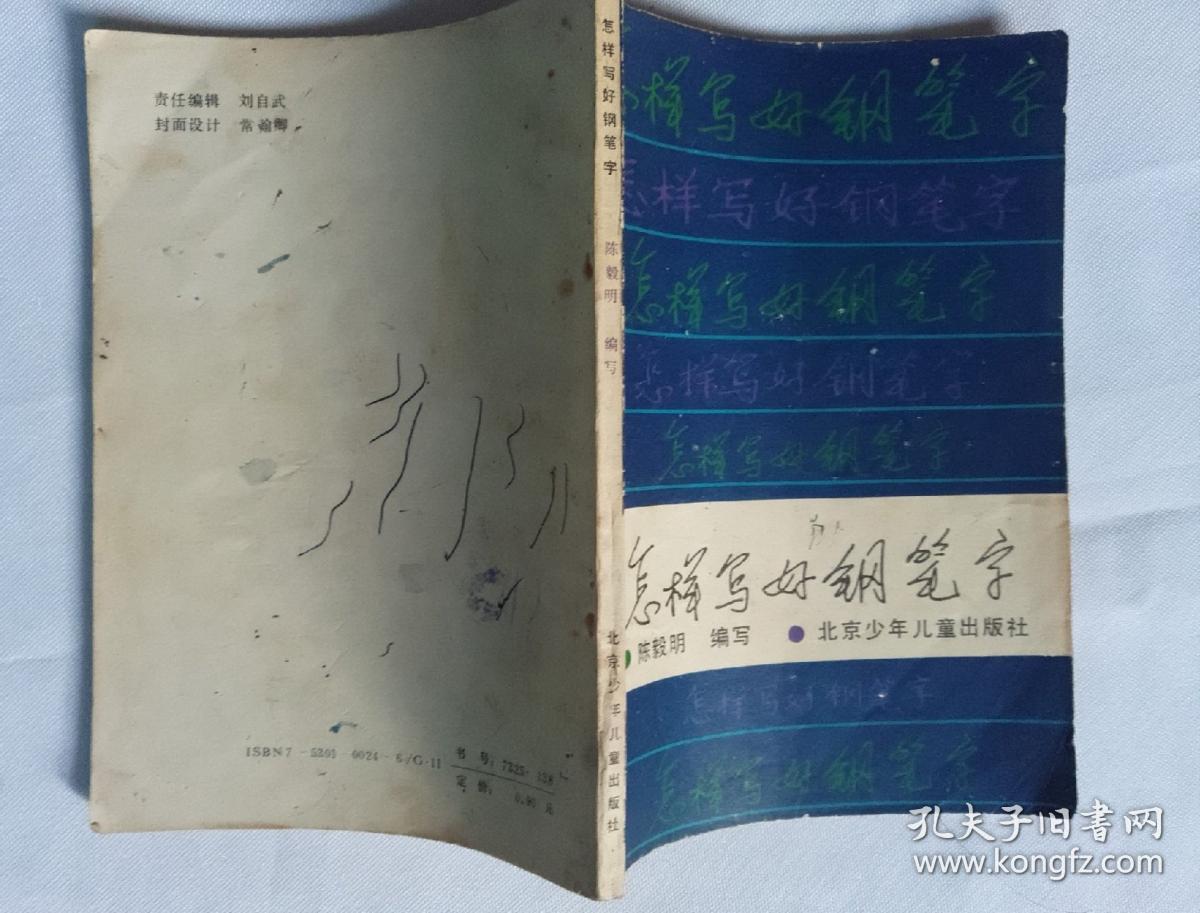 责任编辑 刘自武
封面设计 常瀚卿
ISBN7-5301-0024-6/G·11
书号:7325·138
定价: 0.90 元
怎样写好钢笔字 陈毅明 编写 北京少年儿童出版社
怎样写好钢笔字
怎样写好钢笔字
怎样写好钢笔字
怎样写好钢笔字
怎样写好钢笔字
怎样写好钢笔字
陈毅明 编写 北京少年儿童出版社
怎样写好钢笔字
怎样写好钢笔字
孔夫子旧书网
www.kongfz.com